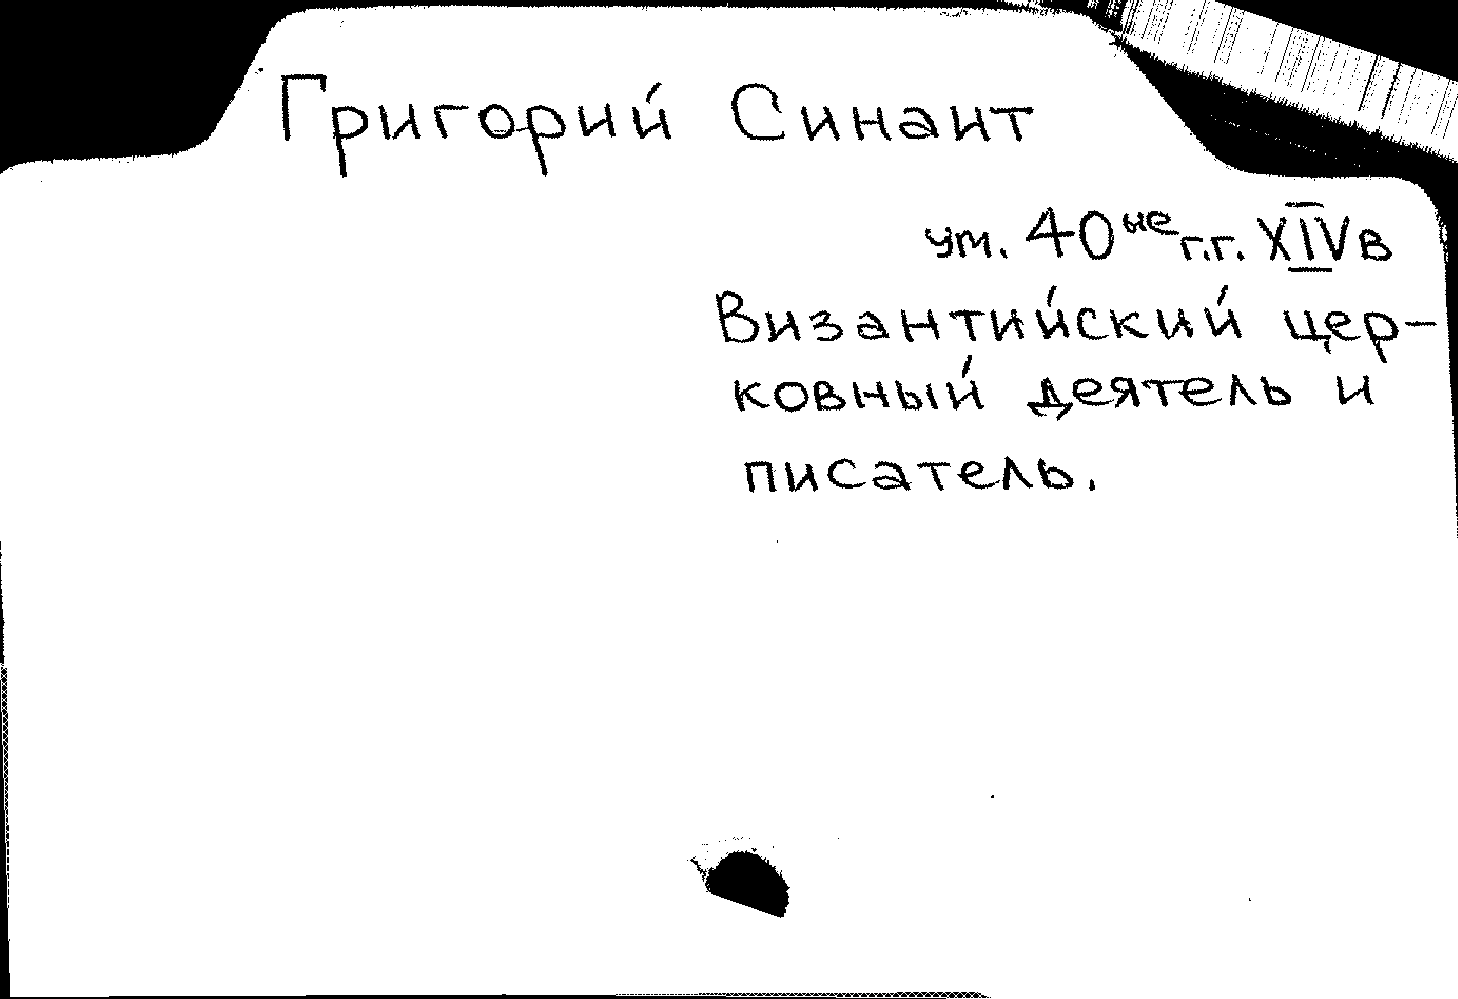 Григорий Синаит
ум. 40ые г.г. XIV в
Византийский цер-
ковный деятель и
писатель.